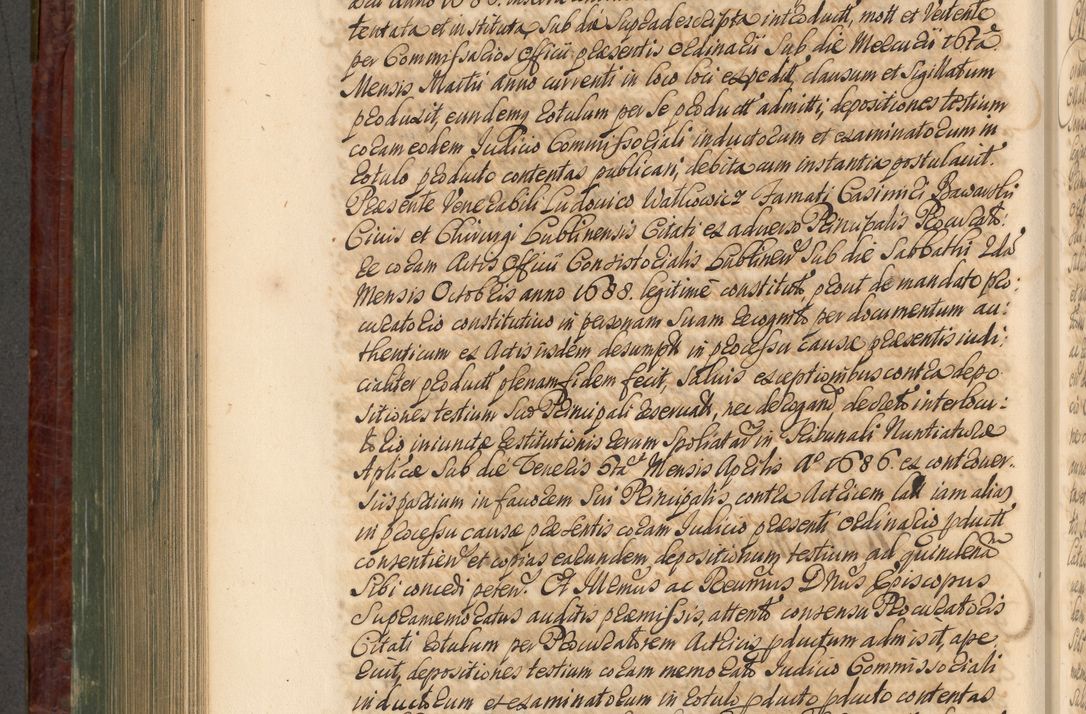 tentata et instituta, sub die supradescripta introducti, mott et vertente
per Commissarios officii praesentis ordinarii sub die Mercurii 16ta
Mensis Martii anno currenti in loco loci expedit, clausum et sigillatum
produxit, eundemq rotulum per se product admitti, depositiones testium
coram eodem Judicio Commissoriali inductorum et examinatorum in
rotulo producto contentas publicari, debita cum instantia postulavit.
Praesente Venerabili Ludovico Watlowicz Famati Casimiri
Civis et Chirurgi Lublinensis Citati ex adverso Principalis Procurato:
re coram Actis Officii Consistorialis Lublinen sub die Sabbathi 2da
Mensis Octobris anno 1688. legitime constitut prout de mandato pro:
curatorio constitutivo in personam suam recognito per documentum au:
thenticum ex Actis iisdem desumpt in processu causae praesentis iudi:
cialiter product plenam fidem fecit, salvis exceptionibus contra depo:
sitiones testium suo Principali reservat, nec derogand decreto interlocu:
torio iniunctae restitutionis rerum spoliatar in Tribunali Nuntiaturae
Aplicae sub die Veneris 5ta Mensis Aprilis Ao 1686. ex controver:
siis partium in favorem sui Principalis, contra Actricem lat iam alias
in processu causae praesentis coram Judicio praesenti ordinario pduct
consentien et copias earundem depositionum testium ad quindenā
sibi concedi peten. Et Illmus ac Rndmus Dnus Episcopus
Supramemoratus auditis praemissis, attento consensu Procuratoris
Citati rotulum per Procuratorem Actricis pductum admisit, ape
ruit, depositiones testium coram memorato Judicio Commissoriali
inductorum et examinatorum in rotulo pducto contentas